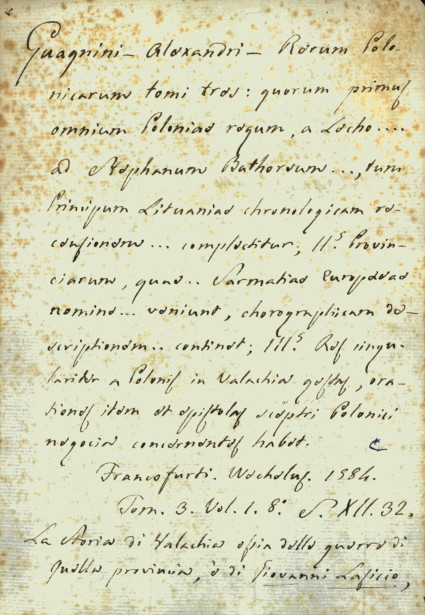 Guagnini - Alexandri - Rerum Polo
nicarum tomi tres: quorum primus
omnium Poloniae regum, a Lecho....
ad Stephanum Bathoreum..., tum
Principum Lituaniae chronologicam re-
censionem... complectitur; II.s Provin-
ciarum, quae... Sarmatiae Europaeae
nomine... veniunt, chorographicam de-
scriptionem... continet; III.s Res singu-
lariter a Polonis in Valachia gestas, ora-
tiones item et epistolas sceptri Polonici
negocia concernentes habet.
Francofurti. Wechelus. 1584.
Tom. 3. Vol. 1. 8.º S. XII. 32.
La storia di Valachia ossia delle guerre di
quella provincia, è di Giovanni Lasicio,